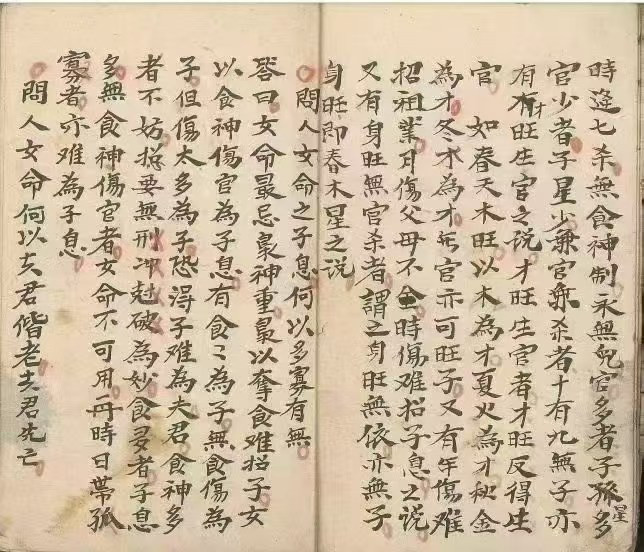 時逢七杀無食神制永無兒官多者子孤多星
官少者子星少兼官兼杀者十有九無子亦
有财旺生官之说才旺生官者才旺反得生
官 如春天木旺以木為才夏火為才秋金
為才冬水為才無官亦可旺子又有年傷难
招祖業月傷父母不全時傷难招子息之说
又有身旺無官杀者謂之身旺無依亦無子
身旺即春木星之说
問人女命之子息何以多寡有無
答曰女命最忌梟神重梟以奪食难招子女
以食神傷官為子息有食〻為子無食傷為
子但傷太多為子恐淂子难為夫君食神多
者不妨招要無刑冲尅破為妙食多者子息
多無食神傷官者女命不可用再時日帶孤
寡者亦难為子息
問人女命何以夫君偕老夫君先亡